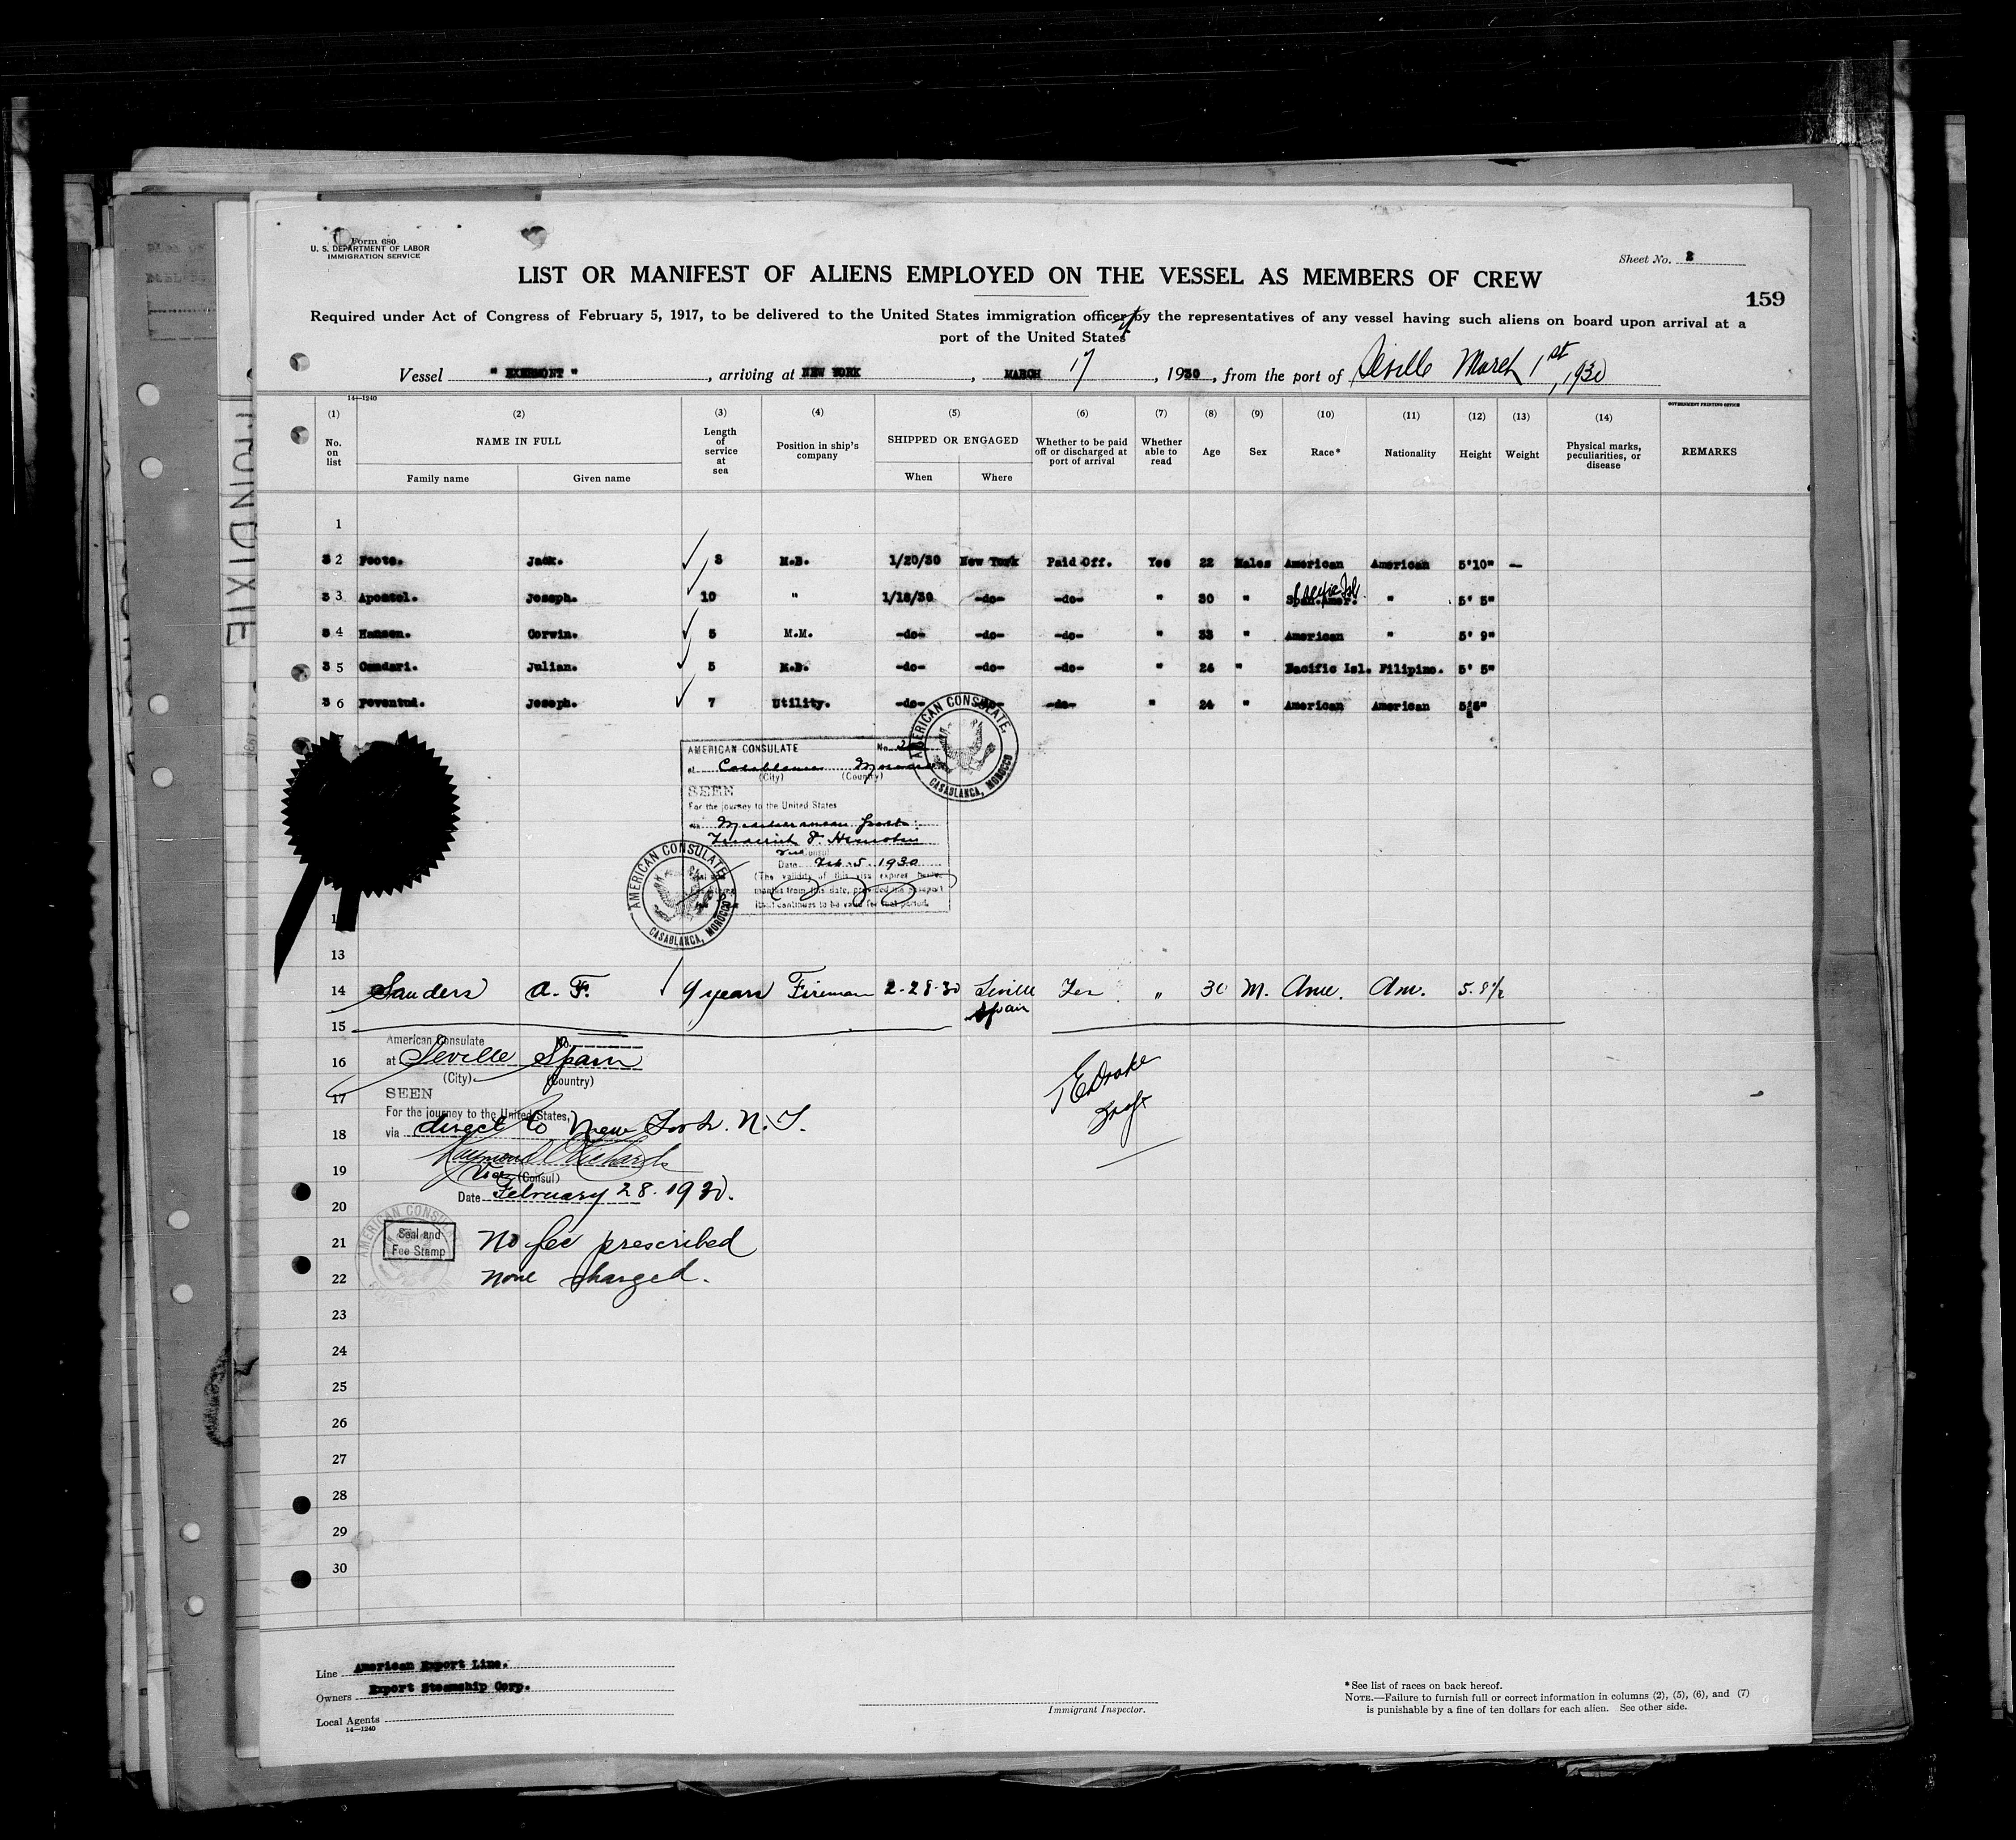 Form 680
U. S. DEPARTMENT OF LABOR
IMMIGRATION SERVICE
Sheet No. 2
LIST OR MANIFEST OF ALIENS EMPLOYED ON THE VESSEL AS MEMBERS OF CREW
159
Required under Act of Congress of February 5, 1917, to be delivered to the United States immigration officer by the representatives of any vessel having such aliens on board upon arrival at a
port of the United States
Vessel " EXERMONT ", arriving at NEW YORK, MARCH 17, 1930, from the port of Seville March 1st, 1930
14—1240
GOVERNMENT PRINTING OFFICE
(1) (2) (3) (4) (5) (6) (7) (8) (9) (10) (11) (12) (13) (14)
No. on list NAME IN FULL Length of service at sea Position in ship's company SHIPPED OR ENGAGED Whether to be paid off or discharged at port of arrival Whether able to read Age Sex Race* Nationality Height Weight Physical marks, peculiarities, or disease REMARKS
Family name Given name When Where
1
3 2 Foote. Jack. 3 M.B. 1/20/30 New York Paid Off. Yes 22 Males American American 5'10" —
3 3 Apostol. Joseph. 10 " 1/18/30 -do- -do- " 30 " Span.Amer. Pacific Isl " 5' 5"
3 4 Hansen. Corwin. 5 M.M. -do- -do- -do- " 33 " American " 5' 9"
3 5 Candari. Julian. 5 M.B. -do- -do- -do- " 26 " Pacific Isl. Filipino. 5' 5"
3 6 Poventud. Joseph. 7 Utility. -do- -do- -do- " 24 " American American 5'5"
AMERICAN CONSULATE No.
at Casablanca Morocco
(City) (Country)
SEEN
For the journey to the United States
via Mediterranean ports
Vice Consul
Date Feb. 5. 1930
(The validity of this visa expires twelve
months from this date, provided the passport
continues to be valid for that period.
AMERICAN CONSULATE, CASABLANCA, MOROCCO
AMERICAN CONSULATE, CASABLANCA, MOROCCO
13
14 Sanders A. F. 9 years Fireman 2-28-30 Seville Spain Yes " 30 M. Ame. Am. 5. 8½
15
American Consulate No.
16 at Seville Spain
(City) (Country)
17 SEEN
For the journey to the United States,
18 via direct to New York. N. Y.
19 Raymond Richards
Vice (Consul)
Date February 28. 1930.
20
AMERICAN CONSULATE
21 Seal and
Fee Stamp
No fee prescribed
22 none charged.
23
24
25
26
27
28
29
30
Line American Export Line.
Owners Export Steamship Corp.
Local Agents
14—1240
Immigrant Inspector.
*See list of races on back hereof.
NOTE.—Failure to furnish full or correct information in columns (2), (5), (6), and (7)
is punishable by a fine of ten dollars for each alien. See other side.